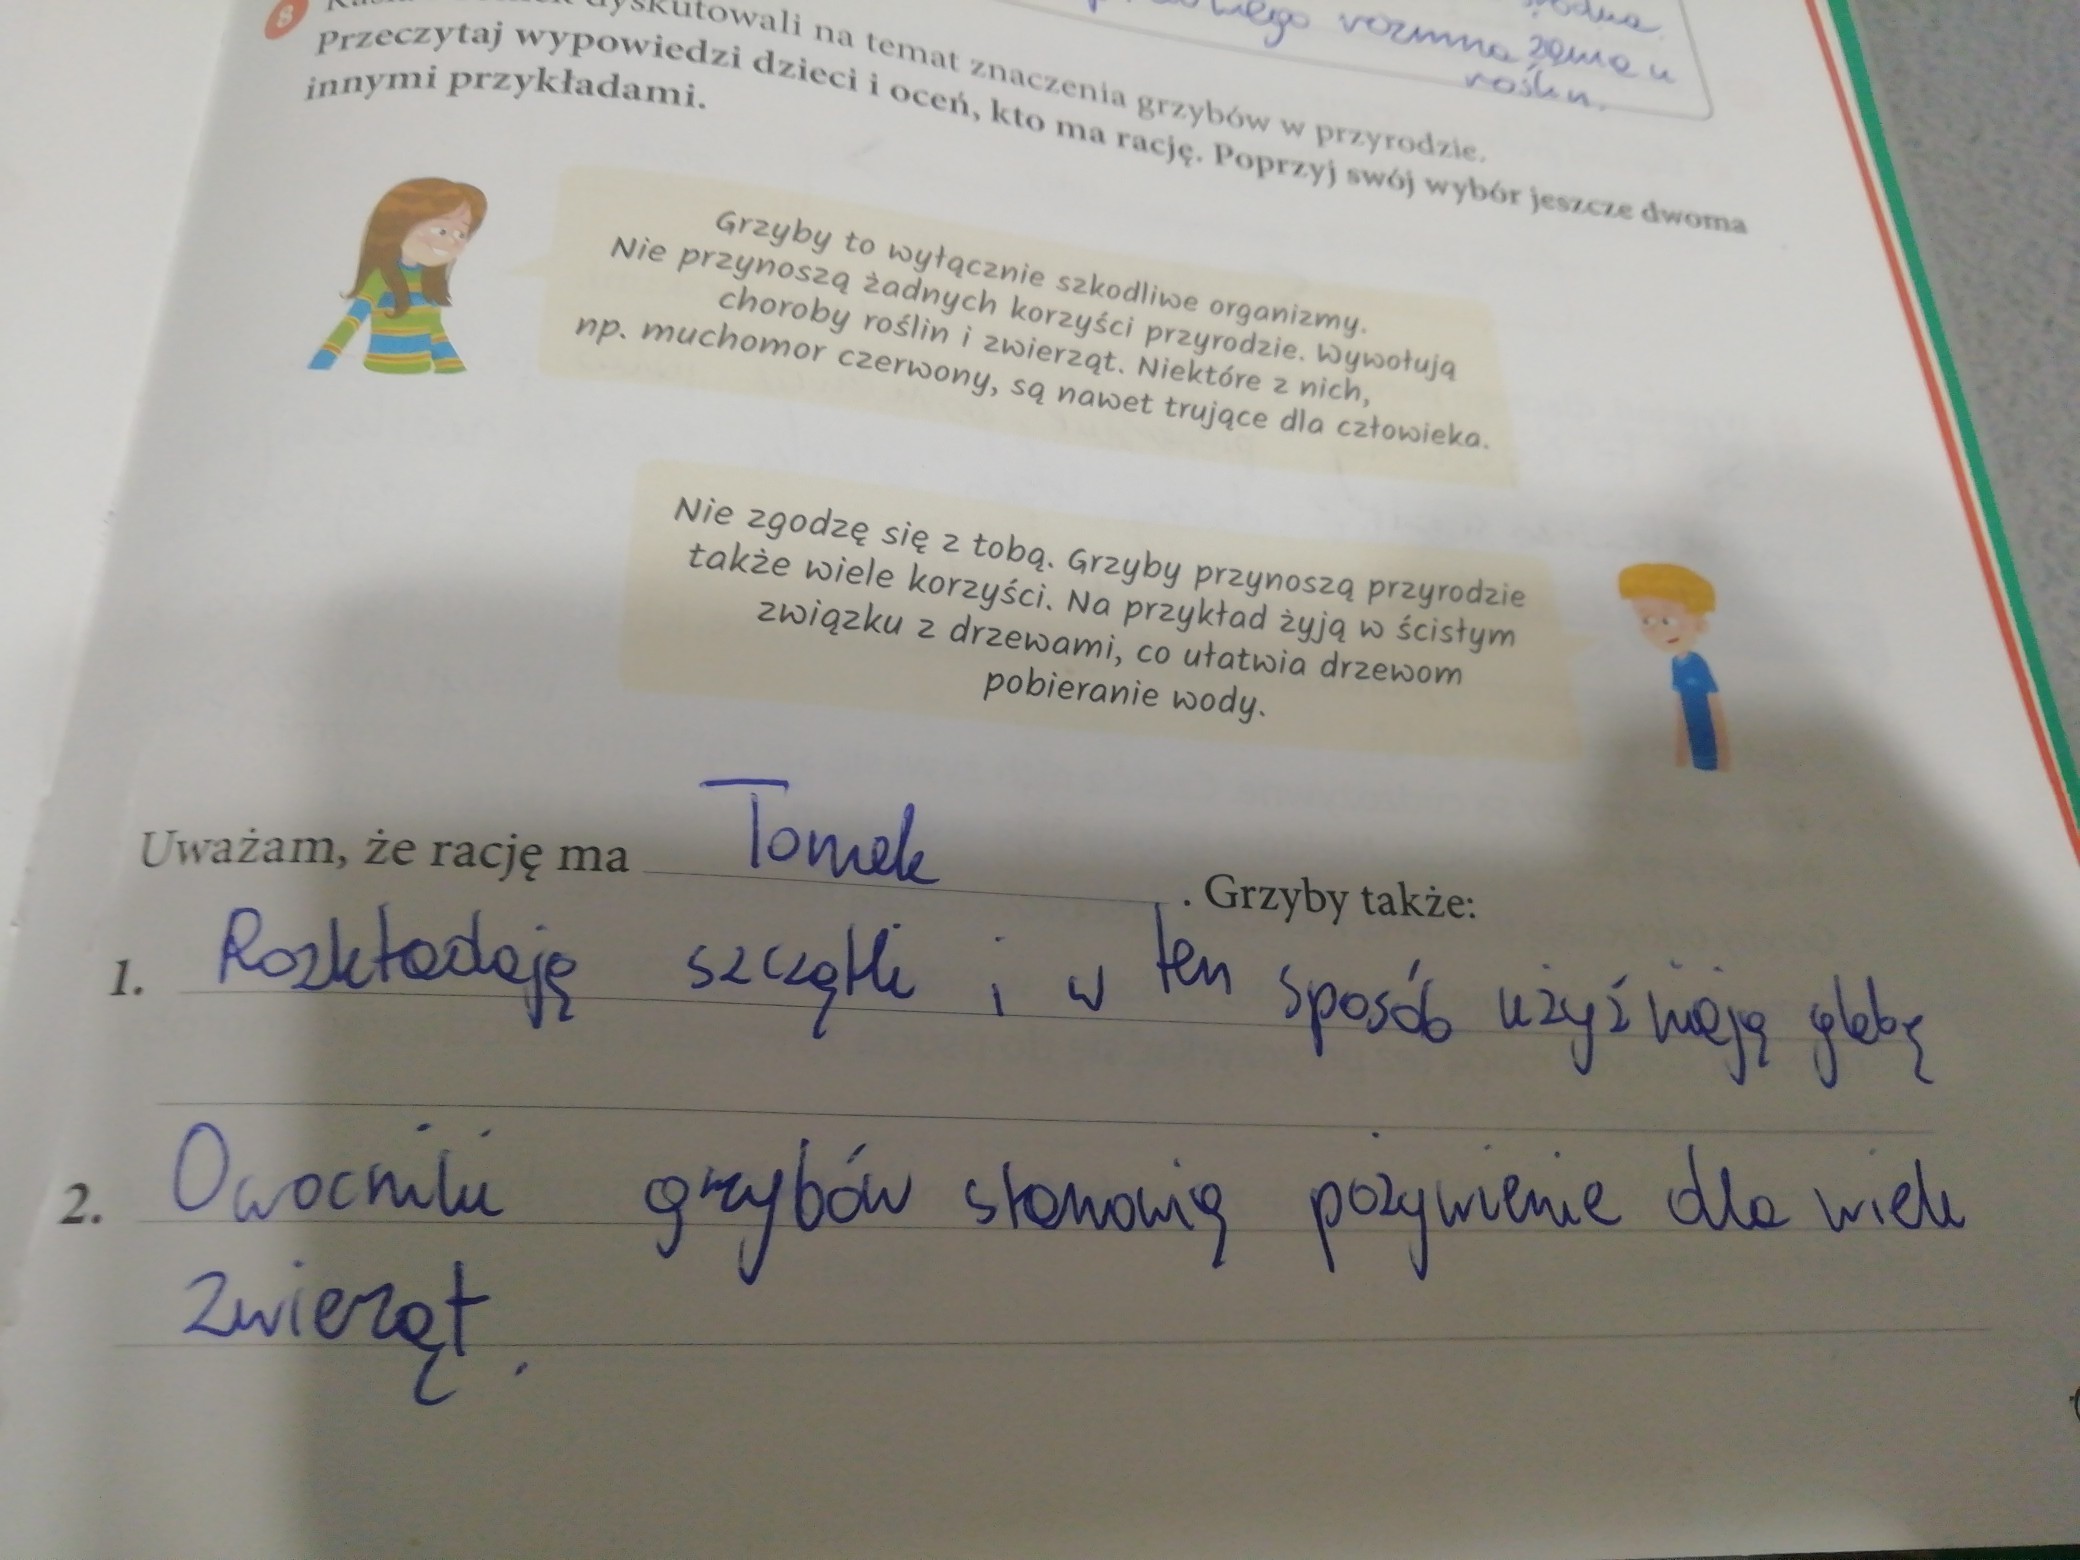 rodna
wego rozmnażania u
roślin.
8
dyskutowali na temat znaczenia grzybów w przyrodzie.
Przeczytaj wypowiedzi dzieci i oceń, kto ma rację. Poprzyj swój wybór jeszcze dwoma
innymi przykładami.
Grzyby to wyłącznie szkodliwe organizmy.
Nie przynoszą żadnych korzyści przyrodzie. Wywołują
choroby roślin i zwierząt. Niektóre z nich,
np. muchomor czerwony, są nawet trujące dla człowieka.
Nie zgodzę się z tobą. Grzyby przynoszą przyrodzie
także wiele korzyści. Na przykład żyją w ścisłym
związku z drzewami, co ułatwia drzewom
pobieranie wody.
Uważam, że rację ma Tomek . Grzyby także:
1. Rozkładają szczątki i w ten sposób użyźniają glebę
2. Owocniki grzybów stanowią pożywienie dla wielu
zwierząt.